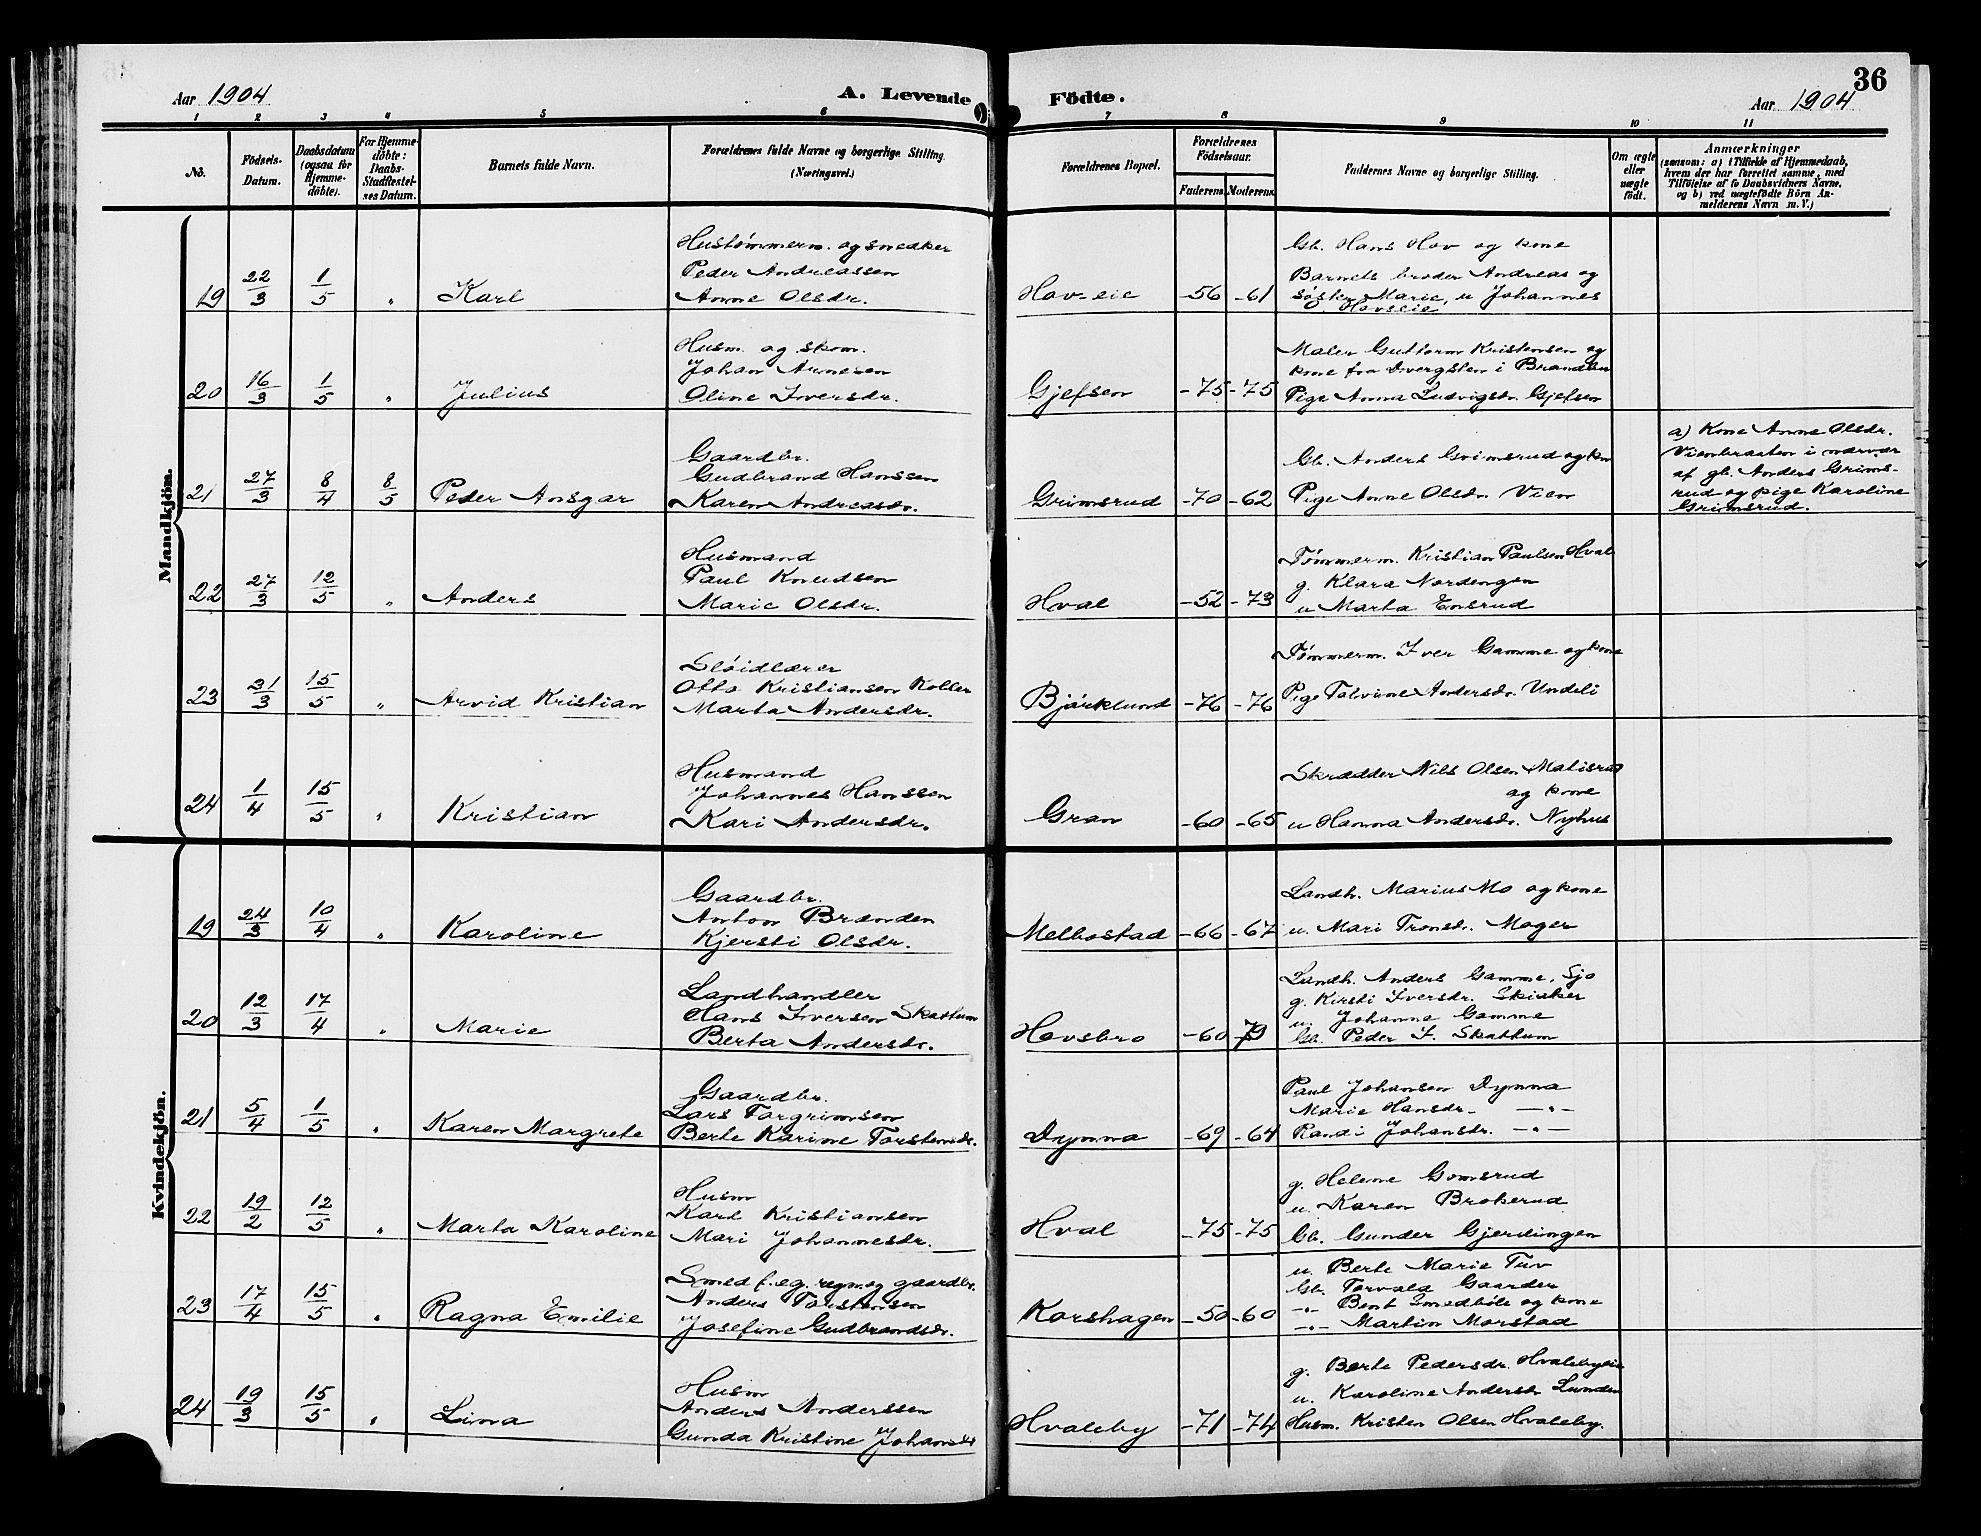 36
Aar 1904 A. Levende Födte. Aar 1904
1 2 3 4 5 6 7 8 9 10 11
No. Födsels-Datum. Daabsdatum (ogsaa for Hjemmedöbte). For Hjemmedöbte: Daabs-Stadfæstelses Datum. Barnets fulde Navn. Forældrenes fulde Navne og borgerlige Stilling. (Næringsvei.) Forældrenes Bopæl. Forældrenes Födselsaar. Faderens Moderens Faddernes Navne og borgerlige Stilling. Om ægte eller uægte födt. Anmærkninger (saasom: a) i Tilfælde af Hjemmedaab, hvem der har forrettet samme, med Tilföielse af to Daabsvidners Navne, og b) ved uægtefödte Börn Anmelderens Navn m. V.)
Mandkjön.
19 22/3 1/5 " Karl
Hustømmerm. og snedker
Peder Andreassen
Anne Olsdr.
Hov-eie -56 -61
Gb. Hans Hov og kone
Barnets broder Andreas og
søster Marie, u Johannes
Hovseie
20 16/3 1/5 " Julius
Husm. og skom.
Johan Arnesen
Oline Iversdr.
Gjefsen -75 -75
Maler Guttorm Kristensen og
kone fra Dvergsten i Brandbu
Pige Anna Ludvigsdr. Gjefsen
21 27/3 8/4 8/5 Peder Ansgar
Gaardbr.
Gudbrand Hanssen
Karen Andreasdr.
Grimsrud -70 -62
Gb. Anders Grimsrud og kn
Pige Anne Olsdr. Vien
a) Kone Anne Olsdr.
Vienbraaten i nærvær
af gb. Anders Grims-
rud og pige Karoline
Grimsrud.
22 27/3 12/5 " Anders
Husmand
Paul Knudsen
Marie Olsdr.
Hval -52 -73
Tømmerm. Kristian Paulsen Hval
g. Klara Nordengen
u Marta Ensrud
23 31/3 15/5 " Arvid Kristian
Sløidlærer
Otto Kristiansen Koller
Marta Andersdr.
Bjørklund -76 -76
Tømmerm. Iver Gamme og kone
Pige Talvine Andersdr. Undeli
24 1/4 15/5 " Kristian
Husmand
Johannes Hanssen
Kari Andersdr.
Gran -60 -65
Skrædder Nils Olsen Matisrud
og kone
u Hanna Andersdr. Nyhus
Kvindekjön.
19 24/3 10/4 " Karoline
Gaardbr.
Anton Brænden
Kjersti Olsdr.
Melbostad -66 -67
Landh. Marius Mo og kone
u. Mari Tronsdr. Moger
20 12/3 17/4 " Marie
Landhandler
Hans Iversen Skattum
Berta Andersdr.
Hovsbro -60 -79
Landh. Anders Gamme, Sjo
g. Kirsti Iversdr. Skiaker
u. Johanne Gamme
Gb. Peder I. Skattum
21 5/4 1/5 " Karen Margrete
Gaardbr.
Lars Torgrimsen
Berte Karine Torstensdr.
Dynna -69 -64
Paul Johansen Dynna
Marie Hansdr. —"—
Randi Johansdr. —"—
22 19/2 12/5 " Marta Karoline
Husm
Karl Kristiansen
Mari Johannesdr.
Hval -75 -75
g. Helene Gomsrud
u. Karen Brokerud
Gb. Gunder Gjerdingen
23 17/4 15/5 " Ragna Emilie
Smed f. eg. regn og gaardbr.
Anders Torstensen
Josefine Gudbrandsdr.
Korshagen -50 -60
u. Berte Marie Tuv
Gb. Torvald Gaarder
—"— Bent Smedbøle og kone
—"— Martin Morstad
24 19/3 15/5 " Lina
Husm
Anders Anderssen
Gunda Kristine Johansdr
Hvaleby -71 -74
g. Berte Pedersdr. Hvalebyeie
u. Karoline Andersdr Lunden
Husm. Kristen Olsen Hvaleby.